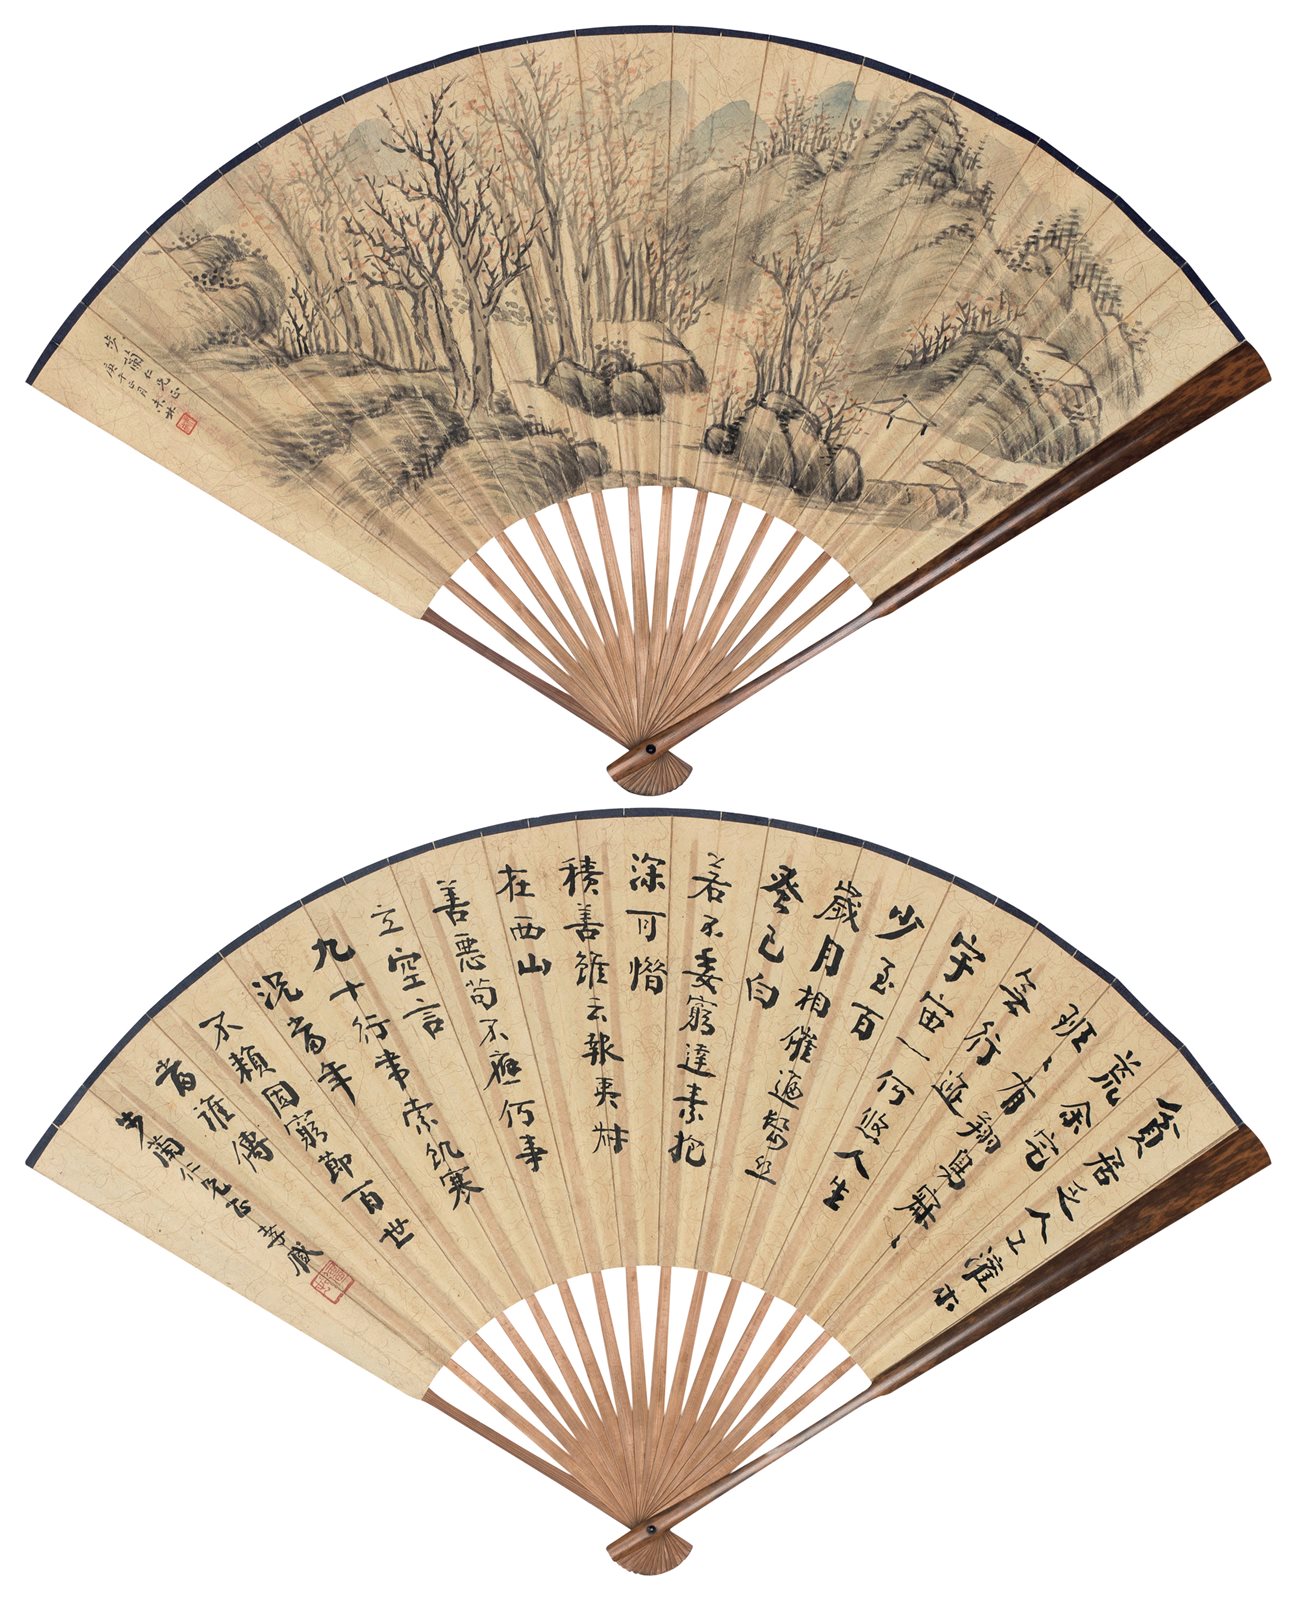 步蘭仁兄正
庚午四月
貧居乏人工灌木
荒余宅
班〻有翔鳥寂〻
無行迹
宇宙一何悠人生
少至百
歲月相催逼鬢絲
蚤已白
若不委窮達素抱
深可惜
積善雖云報夷叔
在西山
善惡苟不應何事
立空言
九十行帶索飢寒
況當年
不賴固窮節百世
當誰傳
步蘭仁兄正 孝臧